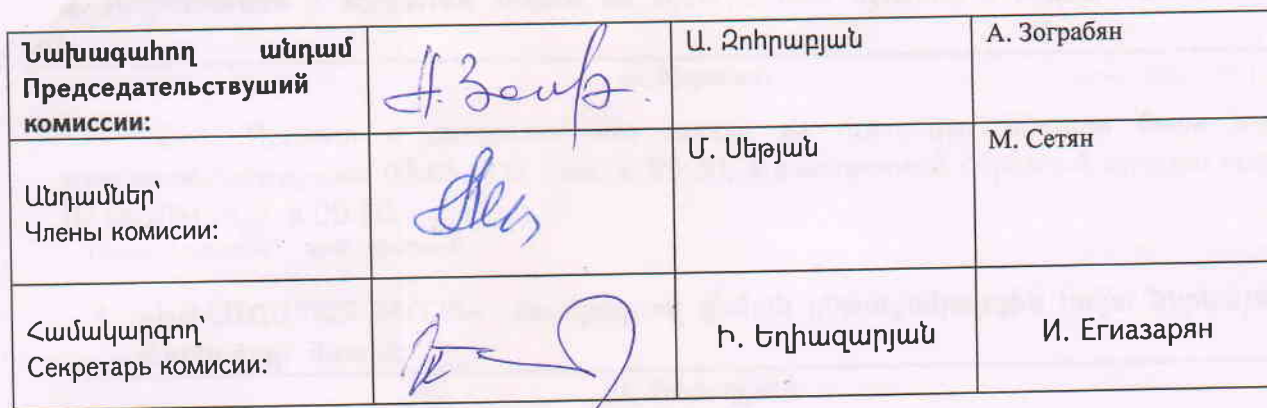 Նախագահող անդամ
Председательствуший
комиссии:
Ա. Զոհրաբյան
А. Зограбян
Անդամներ՝
Члены комисии:
Մ. Սեթյան
М. Сетян
Համակարգող՝
Секретарь комисии:
Ի. Եղիազարյան
И. Егиазарян